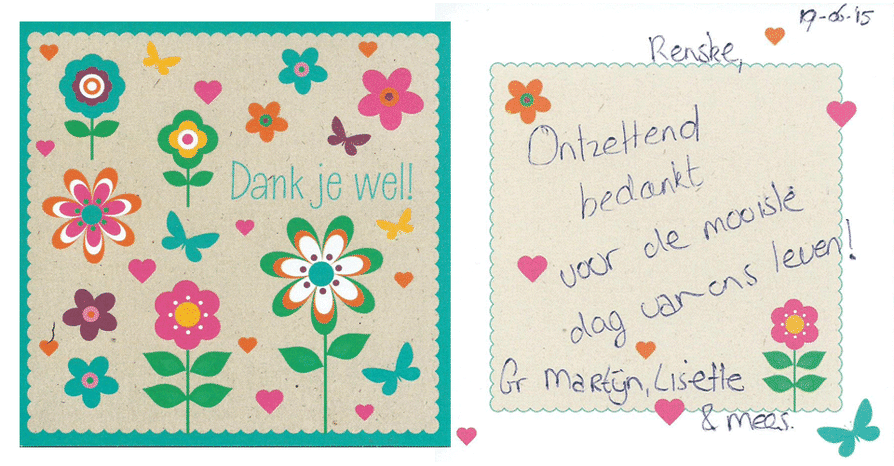 Dank je wel!
19-06-'15
Renske,
Ontzettend
bedankt
voor de mooiste
dag van ons leven!
Gr Martijn, Lisette
& mees.